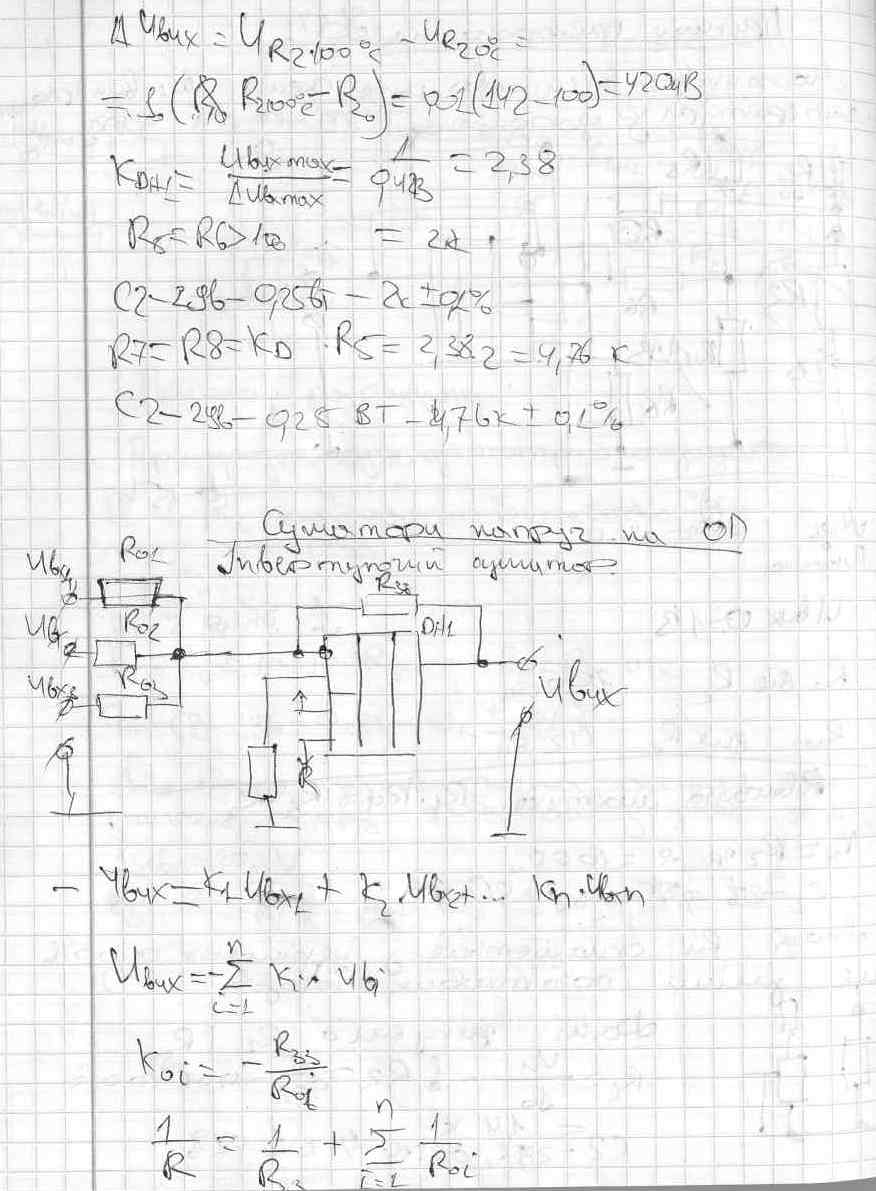 ΔUвих = U R2·100°C − U R20°C =
= I₀(R R2100°C − R20) = 0,01(142 − 100) = 420мВ
KDA1 = Uвих max / ΔUвmax = 1 / 0,42В = 2,38
R5 = R6 > 100 = 2к
C2-29в - 0,25вт - 2к ± 0,1%
R7 = R8 = KD · R5 = 2,38·2 = 4,76 к
C2-29в - 0,25 ВТ - 4,76к ± 0,1%
Суматори напруг на ОП
Інвертуючий суматор
Uвх1 R01
Rзз
Uв R02 DA1
Uвх3 R03
Uвих
R
− Uвих = K1 Uвх1 + K2·Uвх2 + ... Kn·Uвхn
Uвих = −∑ n i=1 Ki · Uвi
K0i = − Rзз / R0i
1/R = 1/Rз + ∑ n i=1 1/R0i